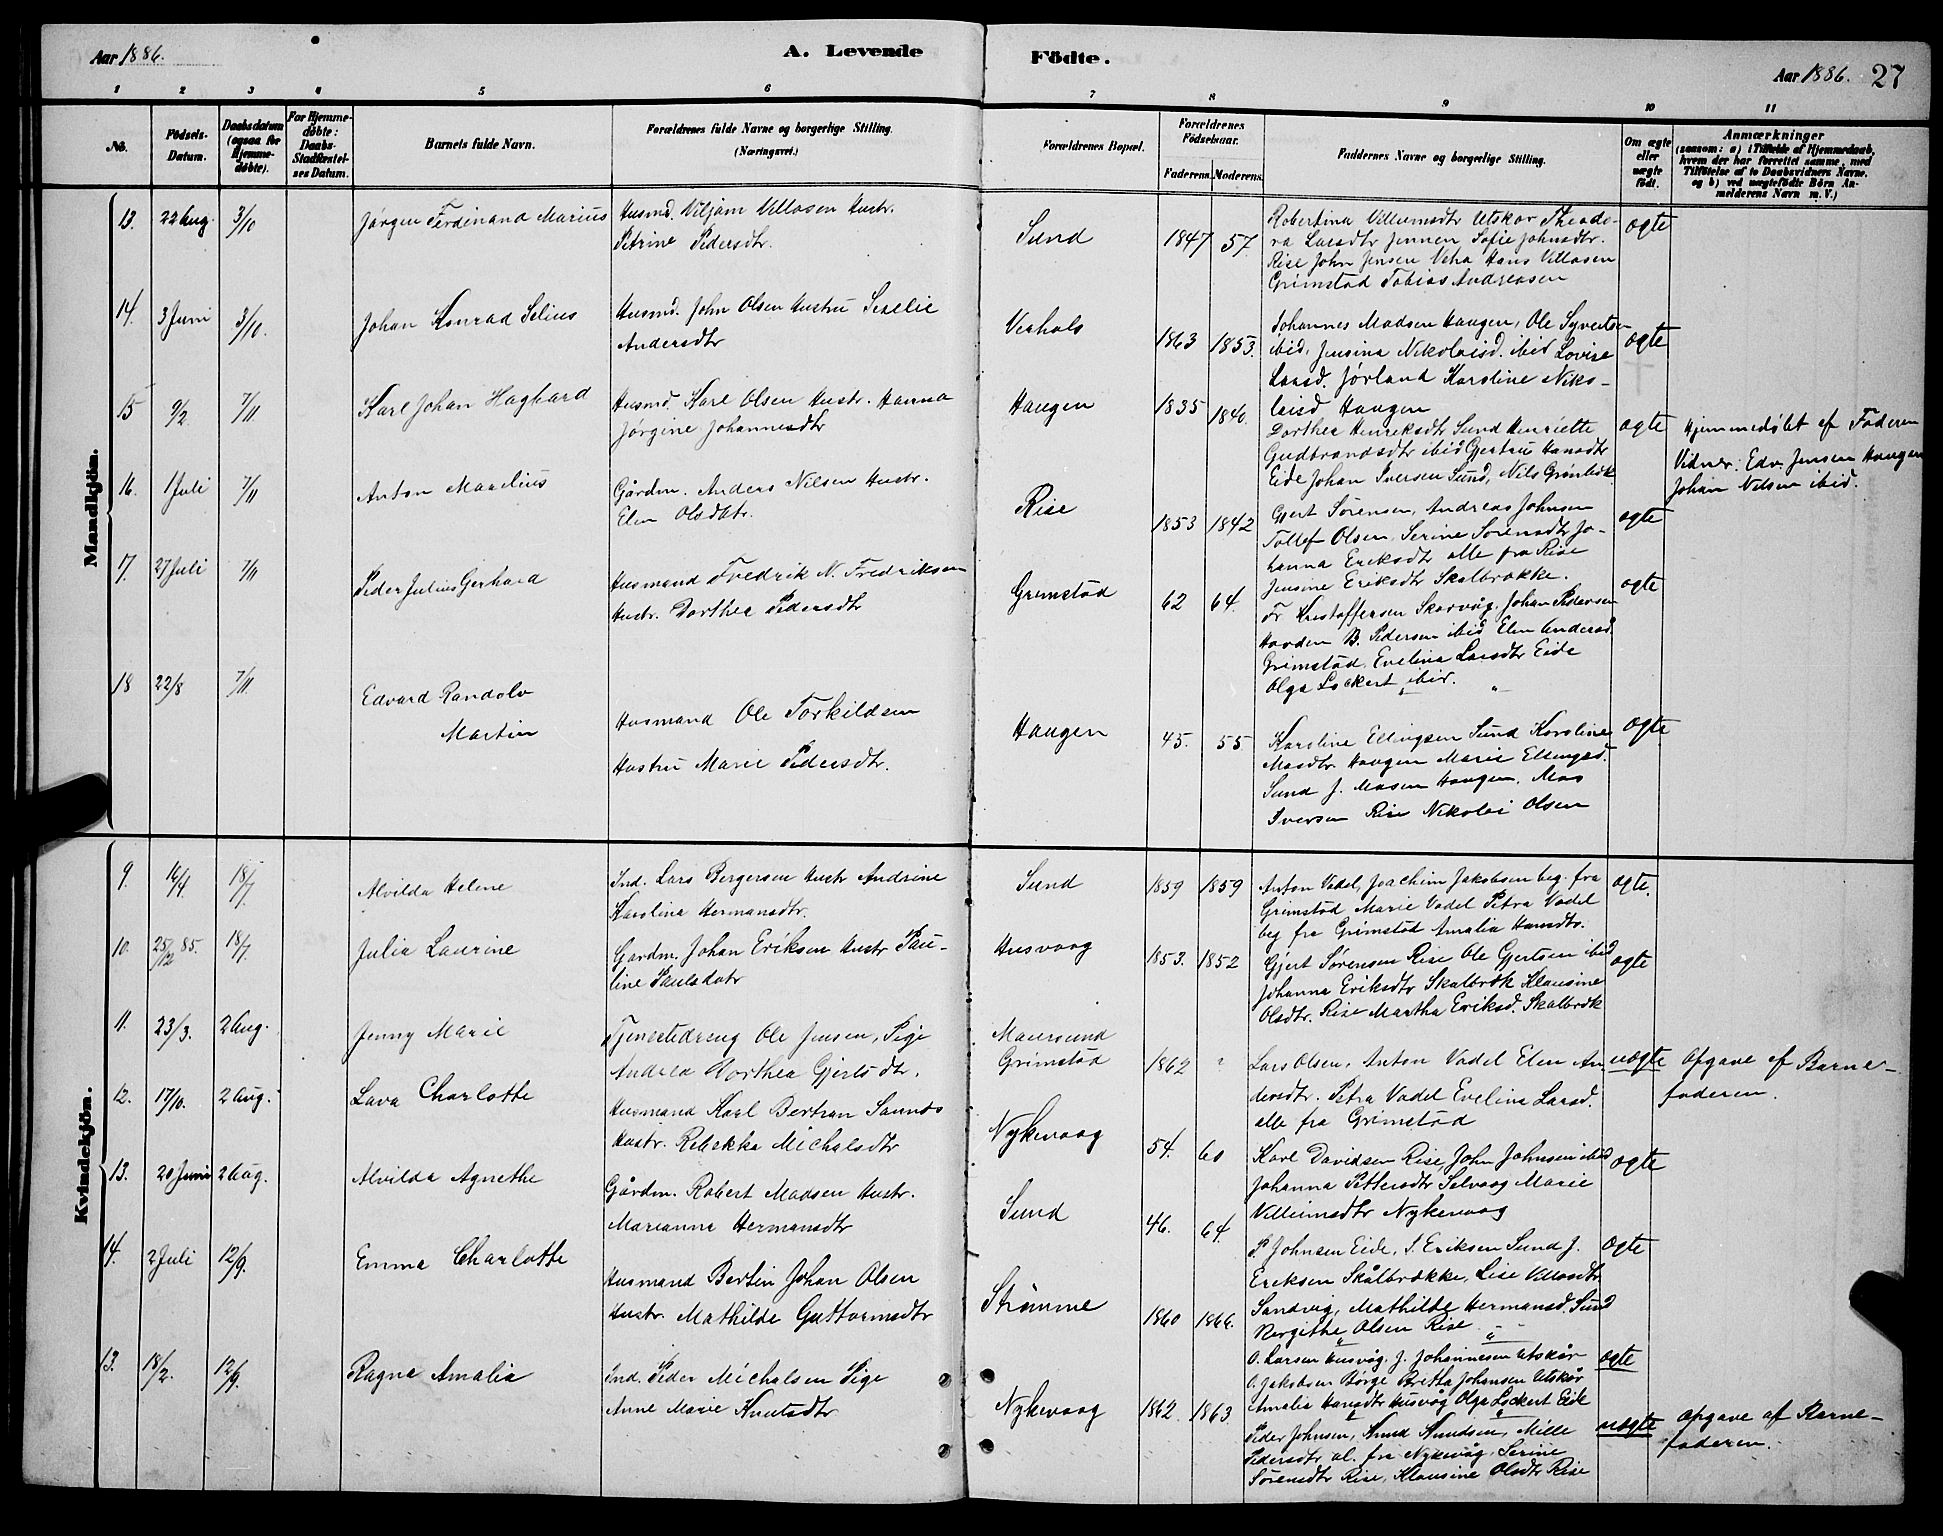 Aar 1886.
A. Levende
Födte.
Aar 1886. 27
1 2 3 4 5 6 7 8 9 10 11
No.
Födsels-Datum.
Daabsdatum (ogsaa for Hjemme-döbte).
For Hjemme-döbte: Daabs-Stadfæstel-ses Datum.
Barnets fulde Navn.
Forældrenes fulde Navne og borgerlige Stilling. (Næringsvei.)
Forældrenes Bopæl.
Forældrenes Födselsaar.
Faderens. Moderens.
Faddernes Navne og borgerlige Stilling.
Om ægte eller uægte födt.
Anmærkninger
(saasom: a) i Tilfælde af Hjemmedaab,
hvem der har forrettet samme, med
Tilföielse af to Daabsvidners Navne.
og b) ved uægtefödte Börn An-
melderens Navn m. V.)
Mandkjön.
13. 22 Aug. 3/10 Jørgen Ferdinand Marius
Husmd. Viljam Villasen Hustr.
Petrine Pedersdtr.
Sund 1847 57.
Robertina Villumsdtr Utskor Theodo-
ra Larsdtr Jennen Sofie Johnsdtr.
Rise John Jensen Veha Hans Villasen
Grimstad Tobias Andreasen
ægte
14. 3 Juni 3/10. Johan Konrad Selius
Husmd. John Olsen Hustru Seselie
Andersdtr
Veahals 1863 1853.
Johannes Madsen Haugen, Ole Syvertsen
ibid, Jensina Nikolaisd. ibid Lovise
Larsd. Jørland Karoline Niko-
laisd Haugen
ægte
15 9/2 7/11. Karl Johan Hagbard
Husmd. Karl Olsen Hustr. Hanna
Jørgine Johannesdtr
Haugen 1835 1840.
Dorthea Henriksdtr Sund Henriette
Gudbrandsdtr ibid Gjertru Hansdtr
Eide Johan Iversen Sund, Nils Grønbæk
ægte
Hjemmedøbt af Faderen
Vidner: Edv. Jensen Haugen
Johan Nilsen ibid.
16. 1 Juli 7/11 Anton Marelius
Gårdm. Anders Nilsen Hustr.
Elen Olsdatr.
Rise 1853 1842
Gjert Sørensen, Andreas Johnsen
Tollef Olsen, Serine Sørensdtr Jo-
hanna Eriksdtr alle fra Rise
Jensine Eriksdtr Skalbrække.
ægte
17. 27 Juli 7/11 Peder Julius Gerhard
Husmand Fredrik N. Fredriksen
Hustr. Dorthea Pedersdtr
Grimstad 62 64.
Fr Kristoffersen Skarvåg, Johan Pedersen
Havden B. Pedersen ibid Elen Andersd
Grimstad, Evelina Larsdtr Eide
Olga Lockert ibid.
ægte
18 22/8 7/11 Edvard Randolv
Martin
Husmand Ole Torkildsen
Hustru Marie Pedersdtr.
Haugen 45. 55
Karoline Ellingsen Sund Karoline
Masdtr Haugen Marie Ellingsd.
Sund J. Masen Haugen. Mas
Iversen Rise Nikolai Olsen
ægte
Kvindekjön.
9. 16/4. 18/7. Alvilda Helene
Ind. Lars Bergersen Hustr Andrine
Karolina Hermansdtr.
Sund 1859 1859
Anton Vadel, Joachim Jakobsen beg. fra
Grimstad Marie Vadel Petra Vadel
beg fra Grimstad Amalia Hansdtr.
ægte.
10. 25/12 85. 18/7. Julia Laurine
Gardm. Johan Eriksen Hustr Pau-
line Paulsdatr
Husvaag 1853. 1852
Gjert Sørensen Rise Ole Gjertsen ibid
Johanna Eriksdtr Skalbræk Klausine
Olsdtr. Rise Martha Eriksd. Skalbræk
ægte
11. 23/3. 2 Aug. Jenny Marie
Tjenestedreng Ole Jensen, Pige
Andrea Dorthea Gjertsdtr.
Maursund
Grimstad 1862 "
Lars Olsen, Anton Vadel Elen An
dersdtr. Petra Vadel Evelina Larsd.
alle fra Grimstad
uægte
Opgave af Barne-
faderen.
12. 17/10. 2 Aug. Lava Charlotte
Husmand Karl Bertran Saunds
Hustr. Rebekka Michalsdtr
Nykevaag 54. 60
Karl Davidsen Rise, John Johnsen ibid
Johanna Pettersdtr Selvaag Marie
Villumsdtr Nykevaag
ægte
13. 20 Juni 2 Aug. Alvilda Agnethe
Gårdm. Robert Madsen Hustr.
Marianna Hermansdtr
Sund 46. 64.
P Johnsen Eide, S. Eriksen Sund J.
Eriksen Skålbrække, Lise Villasdtr
Sandvig, Mathilde Hermansd. Sund
Bergithe Olsen Rise
ægte
14. 2 Juli 12/9. Emma Charlotte
Husmand Bertin Johan Olsen
Hustr. Mathilde Guttormsdtr
Strømme 1860 1866.
O. Larsen Husvåg, J. Johannesen Utskår
O. Jakobsen Börge Beretha Johansen Utskår
Amalia Hansdtr Husvåg Olga Lockert Eide
ægte
13. 18/2. 12/9. Ragna Amalia
Ind. Peder Michalsen Pige
Anne Marie Knutsdtr
Nykevaag 1862. 1863.
Peder Johnsen, Knud Knudsen, Mille
Pedersdtr al. fra Nykevåg. Serine
Sørensdtr Rise, Klausine Olsdtr Rise
uægte
Opgave af Barne-
faderen.